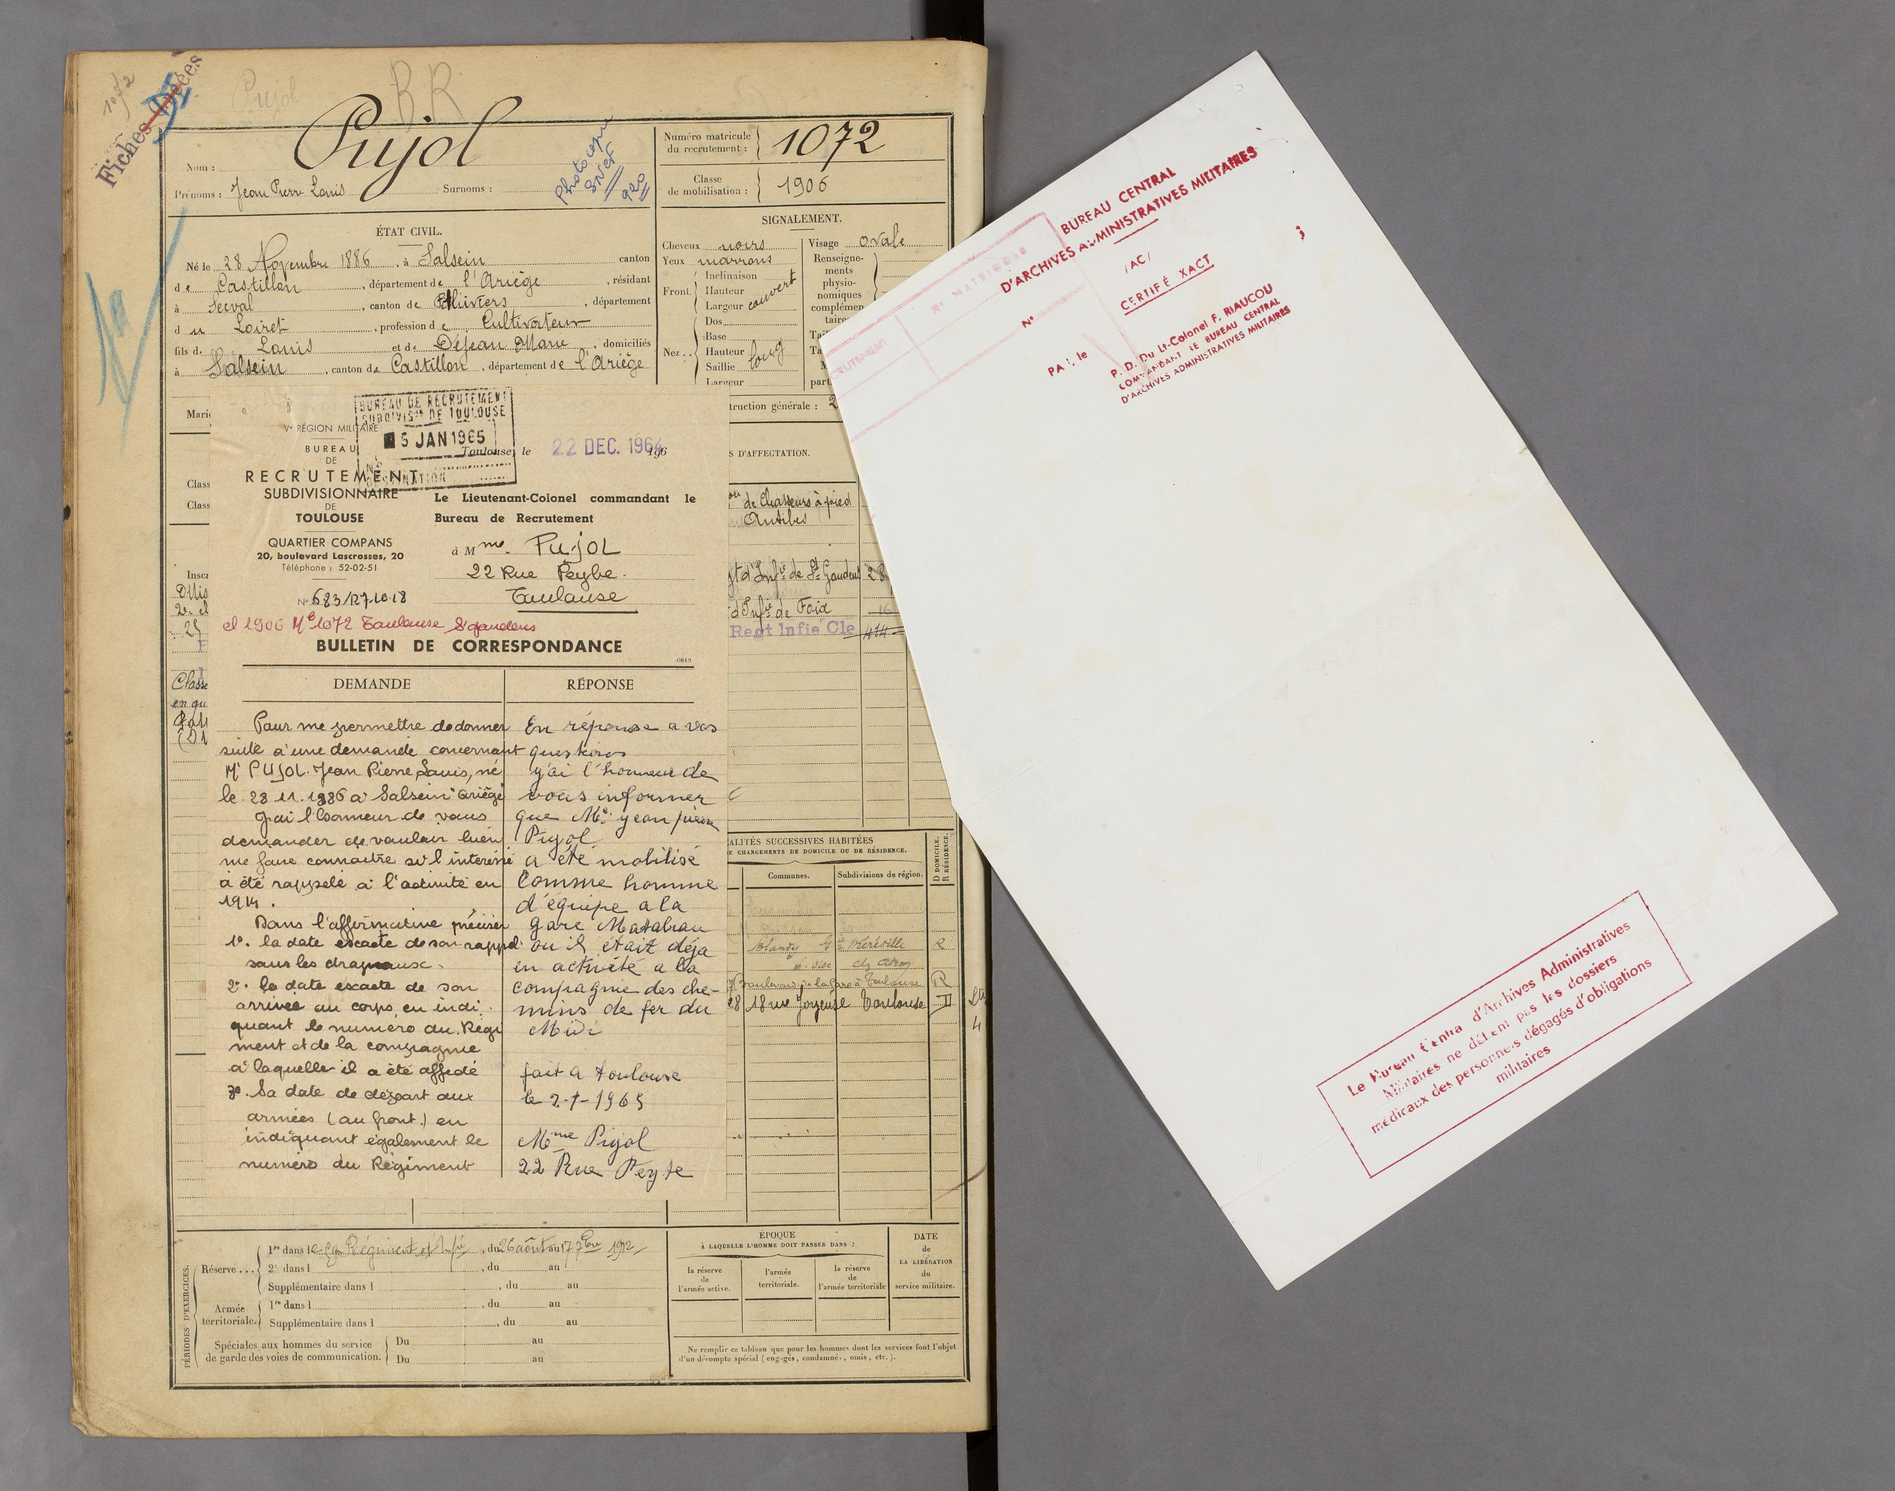 1072
Fiches
Pujol
RR
Pujol
Nom :
Prénoms : Jean Pierre Louis Surnoms :
Photocopie
SNCF
920
Numéro matricule
du recrutement : 1072
Classe
de mobilisation : 1906
ÉTAT CIVIL.
Né le 28 Novembre 1886, à Salsein canton
de Castillon, département de l'Ariège, résidant
à canton de département
du Loiret, profession de Cultivateur
fils de Louis et de Déjean Marie, domiciliés
à Salsein, canton de Castillon, département de l'Ariège
SIGNALEMENT.
Cheveux noirs
Yeux marrons
Front. Inclinaison
Hauteur
Largeur couvert
Nez.. Dos
Base
Hauteur
Saillie long
Largeur
Visage ovale
Renseigne-
ments
physio-
nomiques
complémen
taires
Mari
truction générale : 2
S D'AFFECTATION.
Class
Class
de Chasseurs à pied
Antibes
Inscr
d'Infie de St Gaudens 28
d'Infie de Foix 16
Regt Infie Cle 414
Classe
en qu
BUREAU DE RECRUTEMENT
SUBDIVISn DE TOULOUSE
5 JAN 1965
Ve RÉGION MILITAIRE
BUREAU
DE
RECRUTEMENT
SUBDIVISIONNAIRE
DE
TOULOUSE
QUARTIER COMPANS
20, boulevard Lascrosses, 20
Téléphone : 52-02-51
N° 683/RJ.10.18
Toulouse, le 22 DEC. 1964 196
Le Lieutenant-Colonel commandant le
Bureau de Recrutement
à Mme. PUJOL
22 Rue Peybe.
Toulouse
cl 1906 Mle 1072 Toulouse St gaudens
BULLETIN DE CORRESPONDANCE
DEMANDE
Pour me permettre de donner
suite à une demande concernant
Mr PUJOL. Jean Pierre Louis, né
le 28 11. 1886 à Salsein "Ariège"
J'ai l'honneur de vous
demander de vouloir bien
me faire connaitre si l'interessé
a été rappelé à l'activité en
1914.
Dans l'affirmative préciser
1°. la date exacte de son rappel
sous les drapeaux.
2°. la date exacte de son
arrivée au corps en indi-
quant le numéro du Régi
ment et de la compagnie
à laquelle il a été affecté
3°. Sa date de départ aux
armées (au front) en
indiquant également le
numéro du Régiment
RÉPONSE
En réponse a vos
questions
j'ai l'honneur de
vous informer
que Mr jean pierre
Pujol
a été mobilisé
Comme homme
d'équipe a la
gare Matabiau
ou il était déja
en activité a la
compagnie des che-
mins de fer du
Midi
fait a toulouse
le 2-1-1965
Mme Pujol
22 Rue Peyte
ALITÉS SUCCESSIVES HABITÉES
E CHANGEMENTS DE DOMICILE OU DE RÉSIDENCE.
Communes.
Subdivisions de région.
D DOMICILE.
R RÉSIDENCE.
Méréville R
Boulevard de la gare à Toulouse R
28 18 rue Joyeuse Toulouse D
PÉRIODES D'EXERCICES.
Réserve... 1re dans le Régiment d'Infie, du 26 août au 17 7bre 1912
2e dans l , du au
Supplémentaire dans l , du au
Armée
territoriale. 1re dans l , du au
Supplémentaire dans l , du au
Spéciales aux hommes du service
de garde des voies de communication. Du au
Du au
ÉPOQUE
À LAQUELLE L'HOMME DOIT PASSER DANS :
la réserve
de
l'armée active.
l'armée
territoriale.
la réserve
de
l'armée territoriale
DATE
de
LA LIBÉRATION
du
service militaire.
Ne remplir ce tableau que pour les hommes dont les services font l'objet
d'un décompte spécial (engagés, condamnés, omis, etc.).
BUREAU CENTRAL
D'ARCHIVES ADMINISTRATIVES MILITAIRES
N° MATRICULE
RECRUTEMENT
/AC/
N°
CERTIFÉ XACT
PA , le
P. D. Du Lt-Colonel F. RIAUCOU
COMMANDANT LE BUREAU CENTRAL
D'ARCHIVES ADMINISTRATIVES MILITAIRES
Le Bureau Central d'Archives Administratives
Militaires ne détient pas les dossiers
médicaux des personnels dégagés d'obligations
militaires